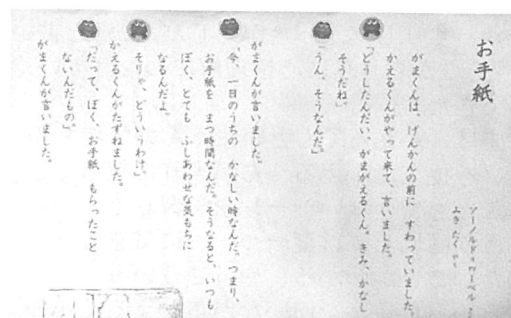 お手紙
アーノルド＝ローベル
みき たくや
がまくんは、げんかんの前に すわっていました。
かえるくんがやって来て、言いました。
「どうしたんだい、がまがえるくん。きみ、かなし
そうだね。」
「うん、そうなんだ。」
がまくんが言いました。
「今、一日のうちの かなしい時なんだ。つまり、
お手紙を まつ時間なんだ。そうなると、いつも
ぼく、とても ふしあわせな気もちに
なるんだよ。」
「そりゃ、どういうわけ。」
かえるくんがたずねました。
「だって、ぼく、お手紙 もらったこと
ないんだもの。」
がまくんが言いました。